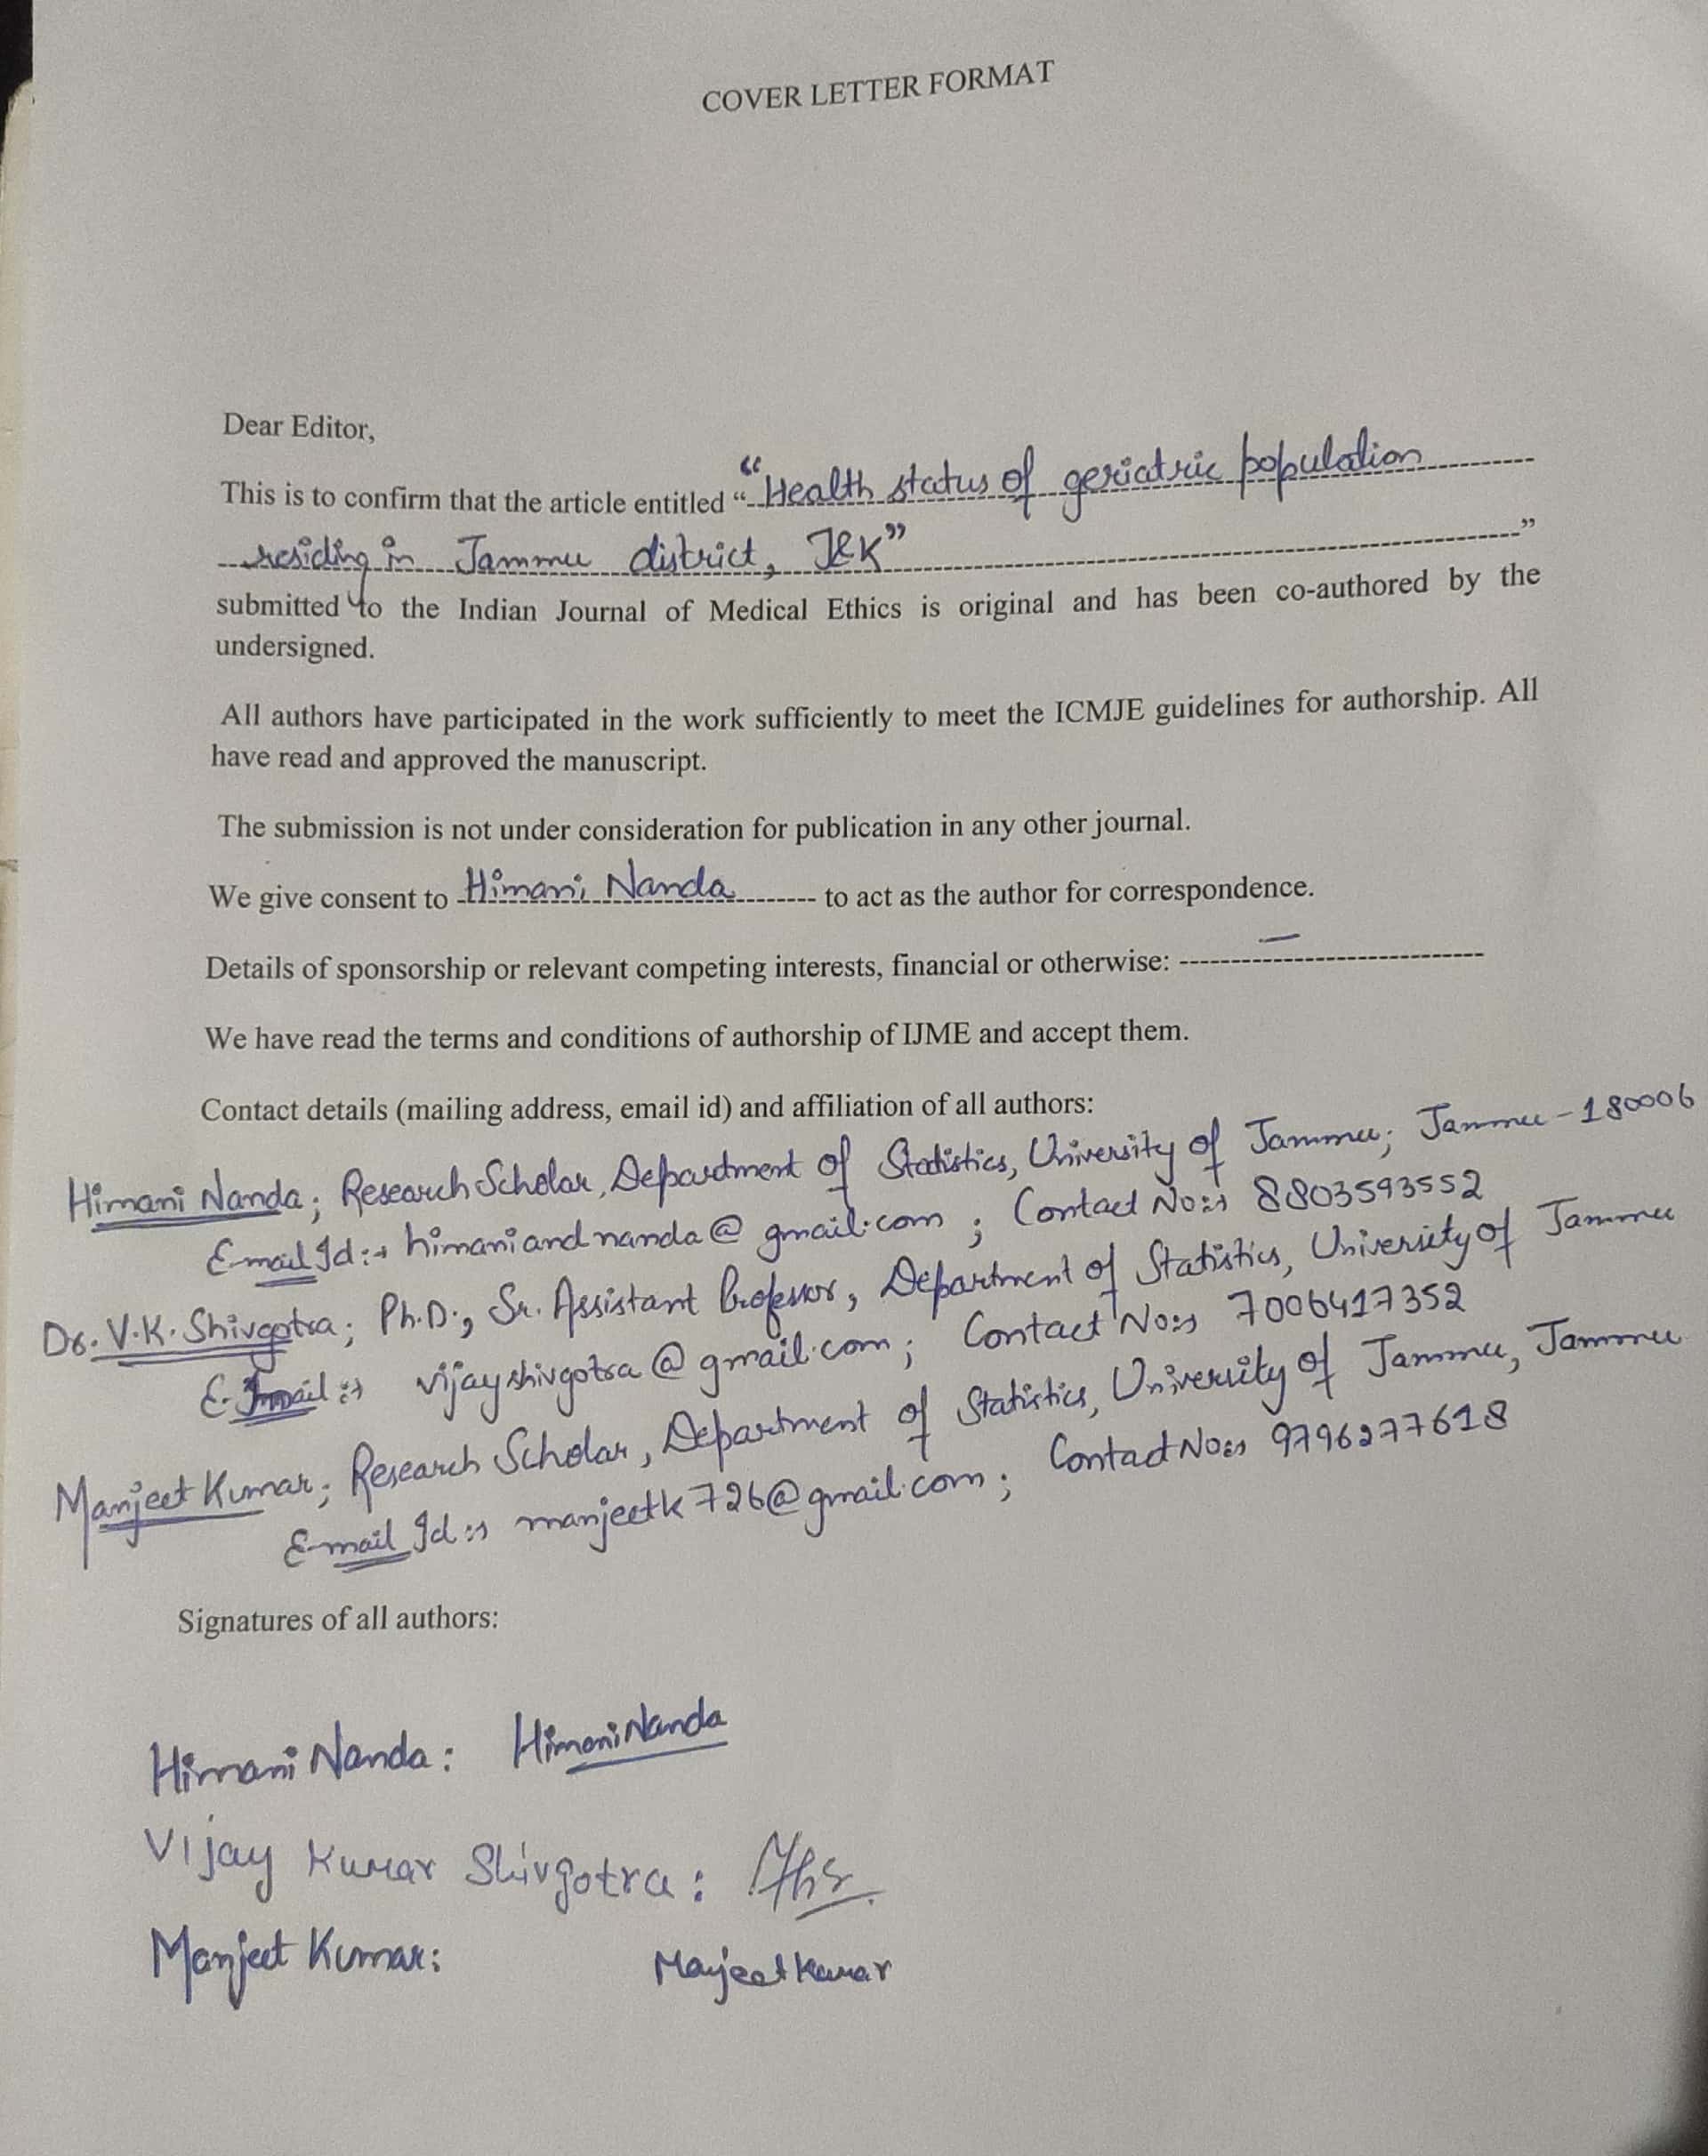 COVER LETTER FORMAT
Dear Editor,
This is to confirm that the article entitled “ “Health status of geriatric population
residing in Jammu district, J&K” ”
submitted to the Indian Journal of Medical Ethics is original and has been co-authored by the
undersigned.
All authors have participated in the work sufficiently to meet the ICMJE guidelines for authorship. All
have read and approved the manuscript.
The submission is not under consideration for publication in any other journal.
We give consent to Himani Nanda to act as the author for correspondence.
Details of sponsorship or relevant competing interests, financial or otherwise: —
We have read the terms and conditions of authorship of IJME and accept them.
Contact details (mailing address, email id) and affiliation of all authors:
Himani Nanda; Research Scholar, Department of Statistics, University of Jammu; Jammu-180006
E-mail Id:→ himaniandnanda@gmail.com; Contact No:→ 8803593552
Dr. V.K. Shivgotra; Ph.D., Sr. Assistant Professor, Department of Statistics, University of Jammu
E-mail:→ vijayshivgotra@gmail.com; Contact No:→ 7006417352
Manjeet Kumar; Research Scholar, Department of Statistics, University of Jammu, Jammu
E-mail Id:→ manjeetk726@gmail.com; Contact No:→ 9796277618
Signatures of all authors:
Himani Nanda: Himani Nanda
Vijay Kumar Shivgotra:
Manjeet Kumar: Manjeet Kumar